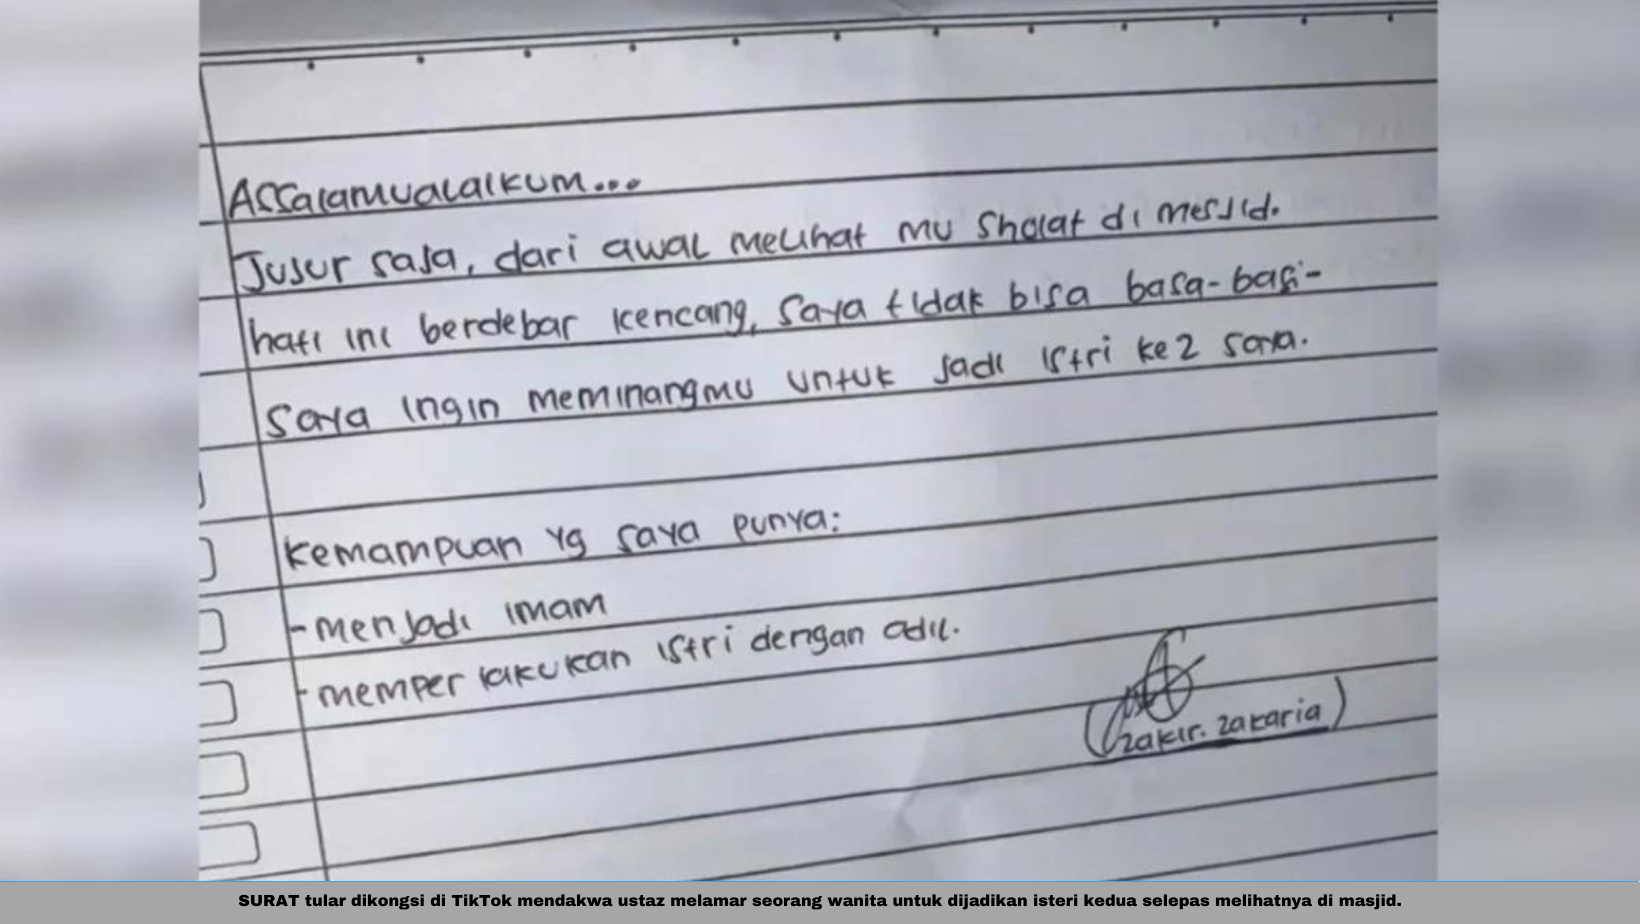 Assalamualaikum...
Jujur saja, dari awal melihat mu sholat di mesjid.
hati ini berdebar kencang, saya tidak bisa basa-basi-
saya ingin meminangmu untuk jadi istri ke 2 saya.
kemampuan yg saya punya:
- menjadi imam
- memperlakukan istri dengan adil.
(zakir. zakaria)
SURAT tular dikongsi di TikTok mendakwa ustaz melamar seorang wanita untuk dijadikan isteri kedua selepas melihatnya di masjid.